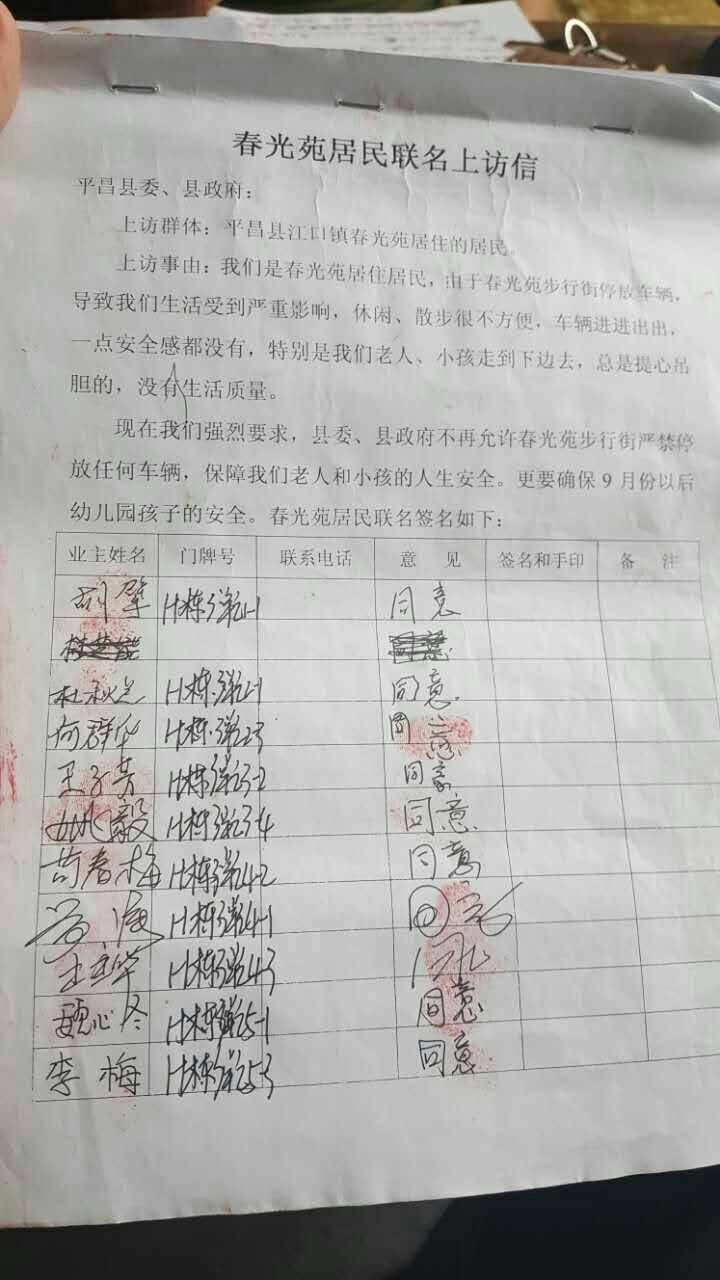 春光苑居民联名上访信
平昌县委、县政府：
上访群体：平昌县江口镇春光苑居住的居民。
上访事由：我们是春光苑居住居民，由于春光苑步行街停放车辆，
导致我们生活受到严重影响，休闲、散步很不方便，车辆进进出出，
一点安全感都没有，特别是我们老人、小孩走到下边去，总是提心吊
胆的，没有生活质量。
现在我们强烈要求，县委、县政府不再允许春光苑步行街严禁停
放任何车辆，保障我们老人和小孩的人生安全。更要确保9月份以后
幼儿园孩子的安全。春光苑居民联名签名如下：
业主姓名 门牌号 联系电话 意 见 签名和手印 备 注
H栋 同意
H栋 同意
何群华 H栋 同意
王子芳 H栋 3-2 同意
姚毅 H栋 3-4 同意
苟春梅 H栋 4-2 同意
H栋 4-1 同意
H栋 4-3
魏心冬 H栋 5-1 同意
李梅 H栋 5-3 同意